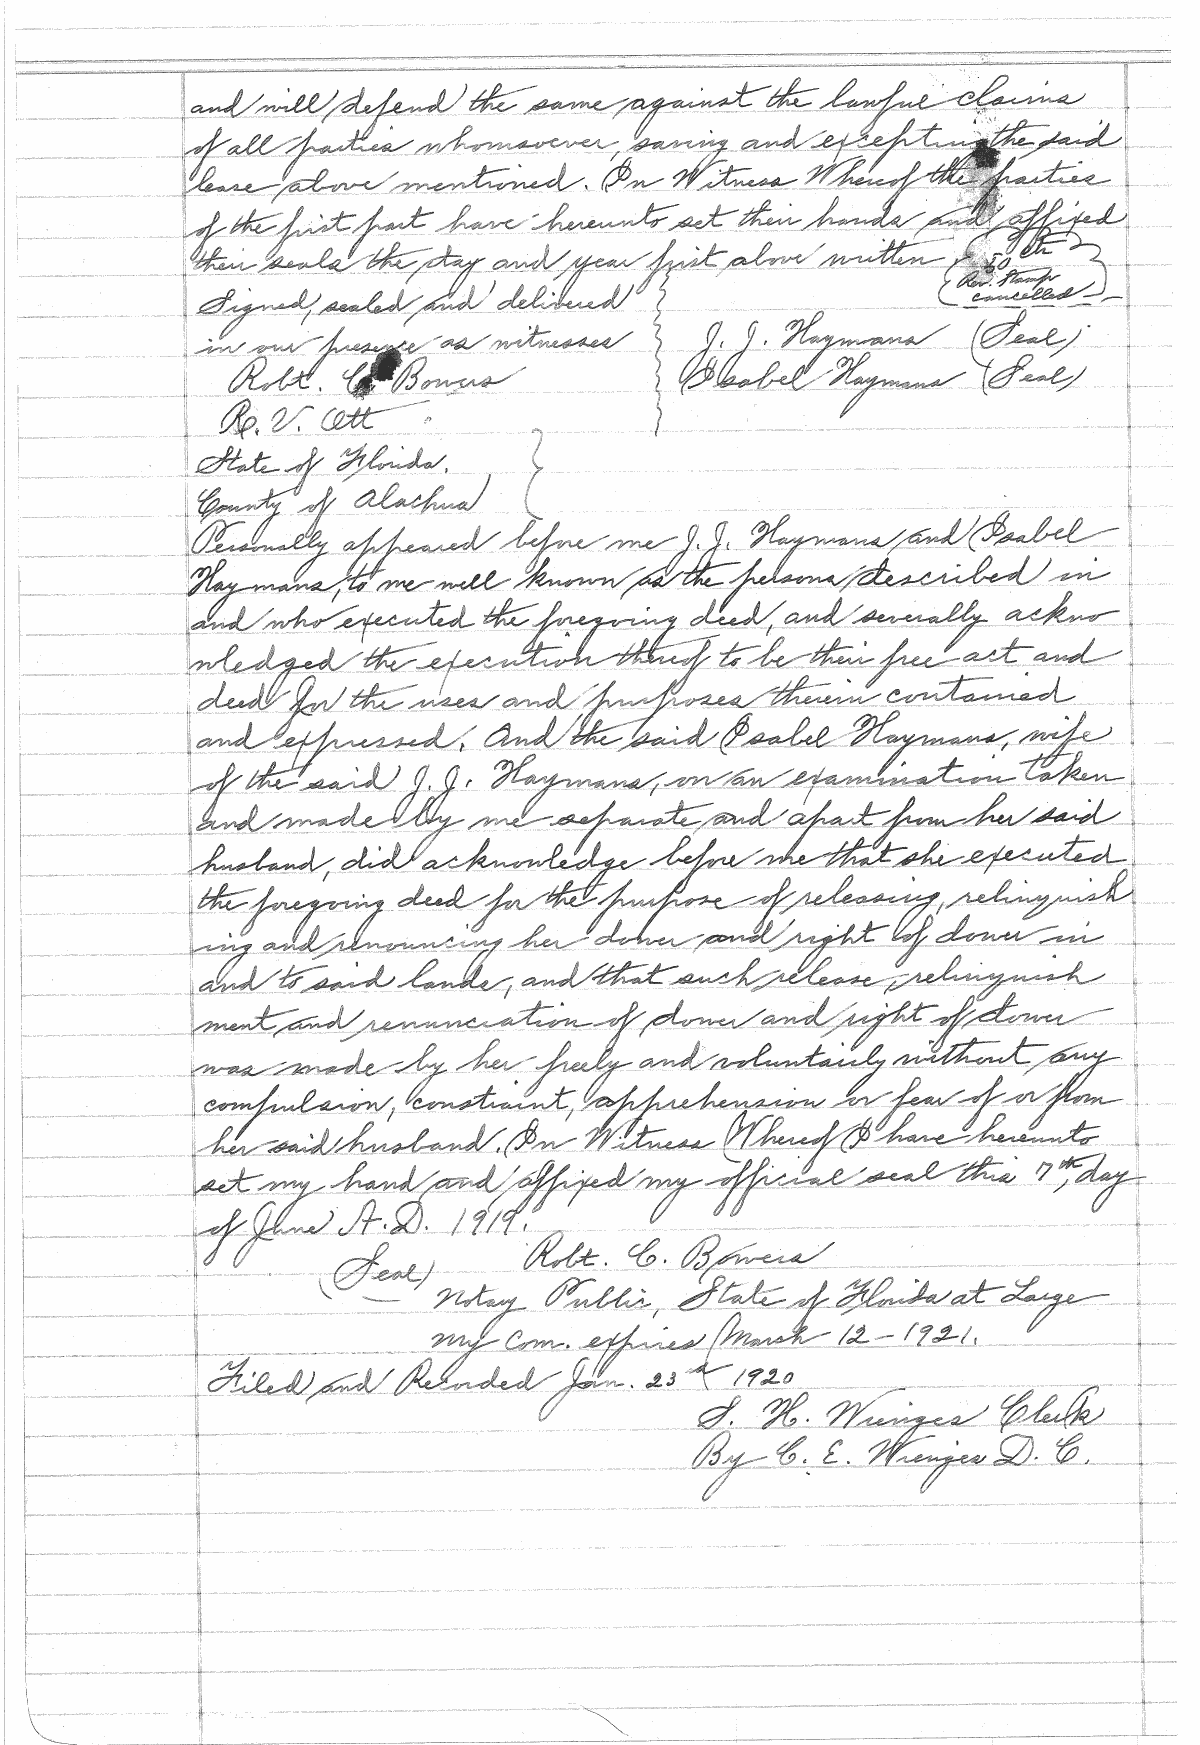 and will defend the same against the lawful claims
of all parties whomsoever, saving and excepting the said
lease above mentioned. In Witness Whereof the parties
of the first part have hereunto set their hands and affixed
their seals the day and year first above written
50 cts
Rev. Stamp
cancelled
Signed, sealed and delivered
in our presence as witnesses
J. J. Haymans (Seal)
Robt. C. Bowers
Isabel Haymans (Seal)
R. V. Ott
State of Florida.
County of Alachua
Personally appeared before me J. J. Haymans and Isabel
Haymans, to me well known as the persons described in
and who executed the foregoing deed, and severally ackno
wledged the execution thereof to be their free act and
deed for the uses and purposes therein contained
and expressed. And the said Isabel Haymans, wife
of the said J. J. Haymans, on an examination taken
and made by me separate and apart from her said
husband, did acknowledge before me that she executed
the foregoing deed for the purpose of releasing, relinquish
ing and renouncing her dower and right of dower in
and to said lands, and that such release, relinquish
ment and renunciation of dower and right of dower
was made by her freely and voluntarily without any
compulsion, constraint, apprehension or fear of or from
her said husband. In Witness Whereof I have hereunto
set my hand and affixed my official seal this 7th, day
of June A.D. 1919.
Robt. C. Bowers
(Seal)
Notary Public, State of Florida at Large
my com. expires March 12-1921.
Filed and Recorded Jan. 23rd 1920
S. H. Wienges Clerk
By C. E. Wienges D. C.